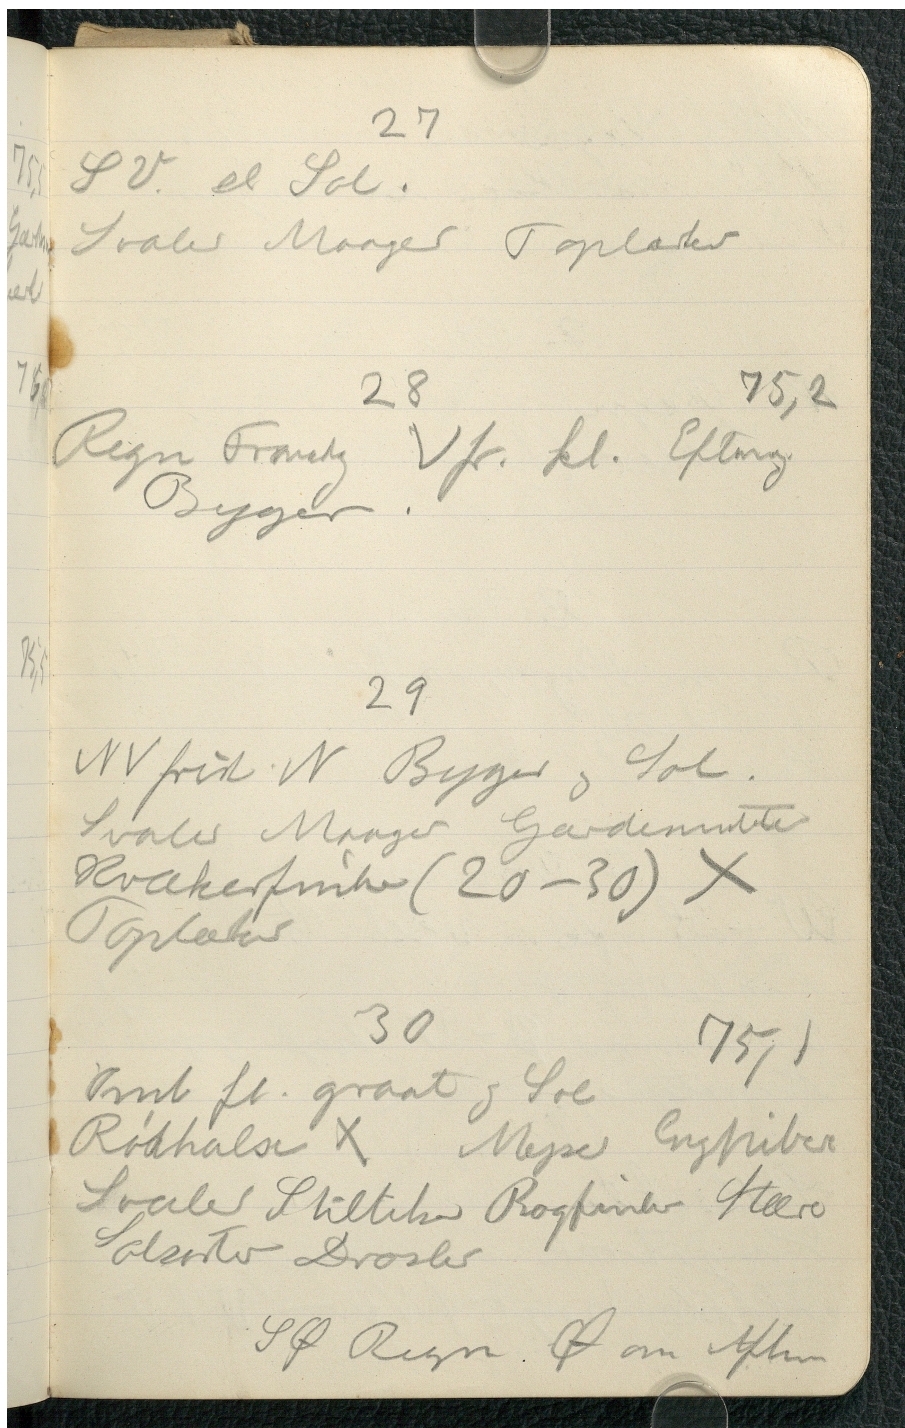 27
SV. el Sol.
Svaler Maager Toplærker
28 75,2
Regn Frmdg V fr. kl. Eftmdg.
Byger.
29
NV frisk N Byger og Sol.
Svaler Maager Gærdesmutte
Kvækerfinker (20-30) X
Toplærker
30 75,1
Oml fl. graat og Sol
Rødhalse X Mejser Engpiber
Svaler Stillitser Bogfinker Stære
Solsorter Drosler
SØ Regn Ø om Aftnen